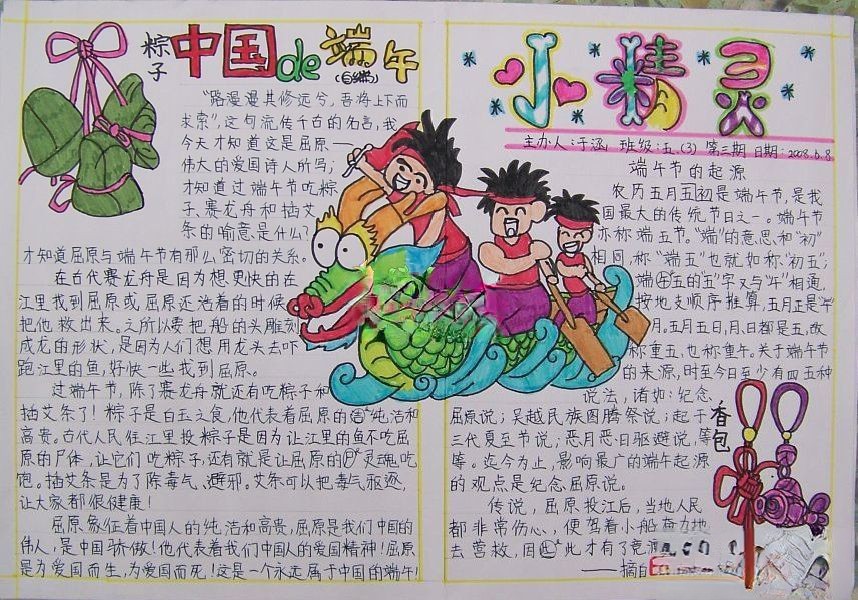 粽子
中国de端午
(自编)
"路漫漫其修远兮，吾将上下而
求索"，这句流传千古的名言，我
今天才知道这是屈原——
伟大的爱国诗人所写；
才知道过端午节吃粽
子、赛龙舟和插艾
条的喻意是什么？
才知道屈原与端午节有那么密切的关系。
在古代赛龙舟是因为想更快的在
江里找到屈原或屈原还活着的时候
把他救出来。之所以要把船的头雕刻
成龙的形状，是因为人们想用龙头去吓
跑江里的鱼，好快一些找到屈原。
过端午节，除了赛龙舟就还有吃粽子和
插艾条了！粽子是白玉之食，他代表着屈原的纯洁和
高贵。古代人民往江里投粽子是因为让江里的鱼不吃屈
原的尸体，让它们吃粽子，还有就是让屈原的灵魂吃
饱。插艾条是为了除毒气、避邪。艾条可以把毒气驱逐，
让大家都很健康！
屈原象征着中国人的纯洁和高贵，屈原是我们中国的
伟人，是中国骄傲！他代表着我们中国人的爱国精神！屈原
是为爱国而生，为爱国而死！这是一个永远属于中国的端午！
小精灵
主办人：汙涵 班级：五(3) 第三期 日期：2008.6.8
端午节的起源
农历五月五初是端午节，是我
国最大的传统节日之一。端午节
亦称端五节。"端"的意思和"初"
相同，称"端五"也就如称"初五"；
端五的"五"字又与"午"相通，
按地支顺序推算，五月正是"午"
月。五月五日，月、日都是五，故
称重五，也称重午。关于端午节
的来源，时至今日至少有四五种
说法，诸如：纪念
屈原说；吴越民族图腾祭说；起于
三代夏至节说；恶月恶日驱避说，等
等。迄今为止，影响最广的端午起源
的观点是纪念屈原说。
传说，屈原投江后，当地人民
都非常伤心、便驾着小船奋力地
去营救，因此才有了竞渡
——摘自
香包